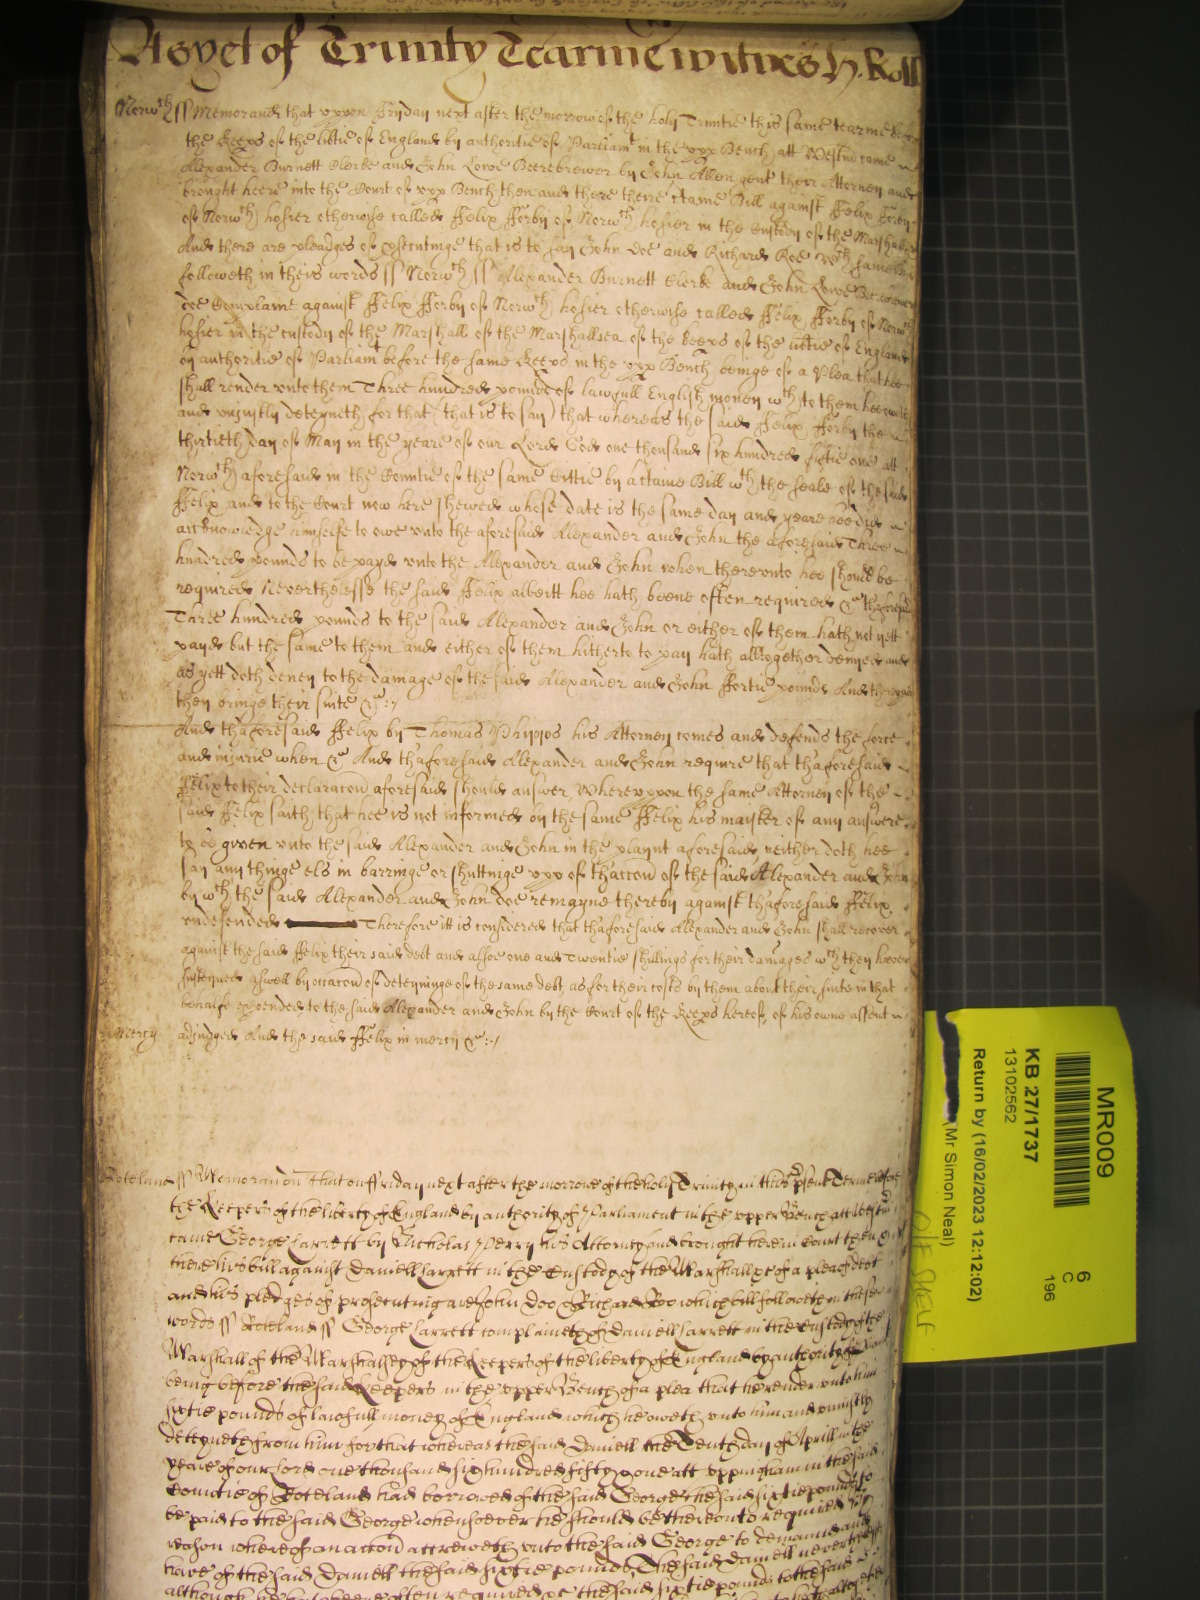 As yet of Trinity Tearme witnes H. Roll
Norwch ss Memorand that uppon Fryday next after the morrow of the holy Trinitie this same tearme before
the Keeps of the libtie of England by authoritie of Parliamt in the upp Bench att Westm came
Alexander Burnett Clerke and John Lowe Beerebrewer by John Allen gent their Attorney and
brought heere into the Court of upp Bench then and there theire ctaine Bill against ffelix fferby
of Norwch hosier otherwise called ffelix fferby of Norwch hosier in the custody of the Marshall
And there are pleadges of psecutinge that is to say John Doe and Richard Roe wch same Bill
followeth in theis words ss Norwch ss Alexander Burnett Clerke and John Lowe Beerebrewer
doe Complaine against ffelix fferby of Norwch hosier otherwise called ffelix fferby of Norwch
hosier in the custody of the Marshall of the Marshallsea of the keeps of the libtie of England
by authoritie of Parliamt before the same Keeps in the upp Bench beinge of a Plea that hee
shall render unto them Three hundred pounds of lawfull English money wch to them hee oweth
and uniustly deteyneth for that (that is to say) that whereas the said ffelix fferby the
thirtieth day of May in the yeare of our Lord God one thousand six hundred fiftie one att
Norwch aforesaid in the Countie of the same Cittie by a ctaine Bill wth the seale of the said
ffelix and to the Court now here shewed whose date is the same day and yeare
acknowledge himselfe to owe unto the aforesaid Alexander and John the aforesaid Three
hundred pounds to be payd unto the Alexander and John when thereunto hee should be
required Neverthelesse the said ffelix albeitt hee hath beene often required &c thaforesaid
Three hundred pounds to the said Alexander and John or either of them hath not yett
payd but the same to them and either of them hitherto to pay hath alltogether denyed and
as yett doth deney to the damage of the said Alexander and John ffortie pounds And thereuppon
then bringe their suite &c
And thaforesaid ffelix by Thomas Phipps his Attorney comes and defends the force
and iniurie when &c And thaforesaid Alexander and John require that thaforesaid
ffelix to their declaracon aforesaid should answer Whereuppon the same Attorney of the
said ffelix saith that hee is not informed by the same ffelix his mayster of any answere
to be given unto the said Alexander and John in the playnt aforesaid neither doth hee
say any thinge els in barringe or shuttinge upp of thaccon of the said Alexander and John
by wch the said Alexander and John doe remayne thereby against thaforesaid ffelix
undefended Therefore itt is considered that thaforesaid Alexander and John shall recover
against the said ffelix their said debt and alsoe one and Twentie shillings for their damages wch they have
susteyned aswell by occacon of deteyninge of the same debt as for their costs by them about their suite in that
behalfe expended to the said Alexander and John by the Court of the Keeps hereof, of his owne assent
Mercy adjudged And the said ffelix in mercy &c
Roteland ss Memorandum That on ffriday next after the morrow of the holy Trinity in this psent Terme before
the Keepers of the liberty of England by authority of Parliament in the upper Bench att Westm
came George Larrett by Nicholas Perry his Attorney and brought here in Court then and
there his bill against Daniell Larrett in the Custody of the Marshall &c of a plea of debt
and his pledges of prosecuting are John Doo & Richard Roo which bill followeth in these
words ss Roteland ss George Larrett complaineth of Daniell Larrett in the Custody of the
Marshall of the Marshalsey of the Keepers of the liberty of England by authority of
being before the said Keepers in the upper Bench of a plea that he render unto him
sixtie pounds of lawfull money of England which he oweth unto him and uniustly
deteyneth from him for that whereas the said Daniell the Tenth day of Aprill in the
yeare of our lord one thousand six hundred fifty & one att uppingham in the said
Countie of Roteland had borrowed of the said George the said sixtie pounds to
be paid to the said George whensoever he should be thereunto required by
reason whereof an accon accreweth unto the said George to demaund and
have of the said Daniell the said sixtie pounds The said Daniell neverthelesse
although he hath been often required &c the said sixtie pounds to the said
MR009
KB 27/1737
13102562
Return by (16/02/2023 12:12:02)
(Mr Simon Neal)
6
C
196
O/E SHELF